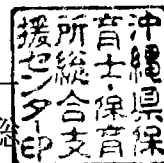 沖縄県保
育士・保育
所総合支
援センター印
総